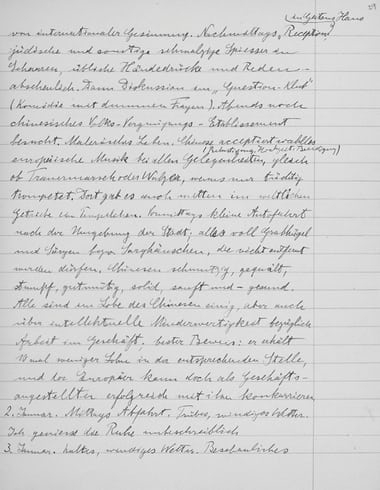 29
(in Gertons Haus
von internationaler Gesinnung. Nachmittags, Reception)
jüdische und sonstige schmalzige Spiesser in
Scharen, übliche Händedrücke und Reden –
abscheulich. Dann Diskussion im „Question-Klub“
(Komödie mit dummen Fragen). Abends noch
chinesisches Volks-Vergnügungs-Etablissement
besucht. Malerisches Leben. Chinese acceptiert wahllos
(Beleidigung, Hochzeit, Beerdigung)
europäische Musik bei allen Gelegenheiten, gleich
ob Trauermarsch oder Walzer, wenns nur tüchtig
trompetet. Dort gab es auch mitten im weltlichen
Getriebe ein Tempelchen. Vormittags kleine Autofahrt
nach der Umgebung der Stadt; alles voll Grabhügel
und Särgen bezw. Sarghäuschen, die nicht entfernt
werden dürfen. Chinesen schmutzig, gequält,
stumpf, gutmütig, solid, sanft und – gesund.
Alle sind im Lobe des Chinesen einig, aber auch
über intellektuelle Minderwertigkeit bezüglich
Arbeit im Geschäft. bester Beweis: er erhält
10 mal weniger Lohn in der entsprechenden Stelle,
und der Europäer kann doch als Geschäfts-
angestellter erfolgreich mit ihm konkurrieren
2. Januar. Mittags Abfahrt. Trübes, windiges Wetter.
Ich geniesse die Ruhe unbeschreiblich
3. Januar. kaltes, windiges Wetter. Beschauliches